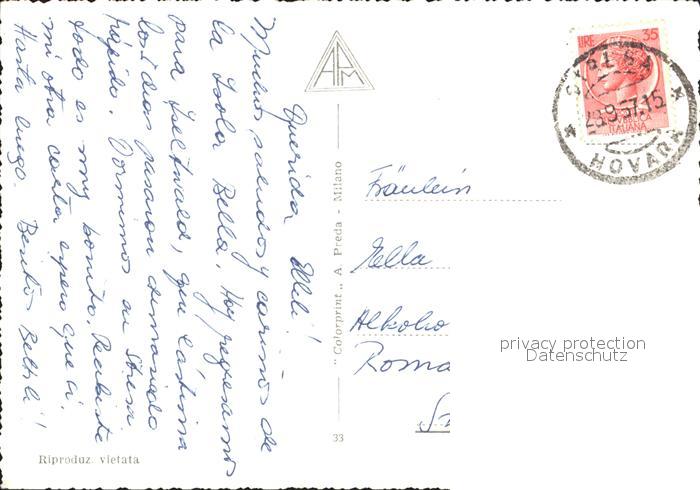 Querida Elleli!
Muchos saludos y cariños de
la Isola Bella. Hoy regresamos
para Iseltwald, que lástima
los dias pasaron demasiado
rápido. Dormimos en Stresa.
Todo es muy bonito. Recibiste
mi otra carta, espero que si.
Hasta luego. Besitos
Riproduz. vietata
"Colorprint" A. Preda - Milano
33
APM
LIRE 35
REPUBBLICA
ITALIANA
23.9.57.15
NOVARA
Fräulein
Ella
Alkoho
Roma
privacy protection
Datenschutz